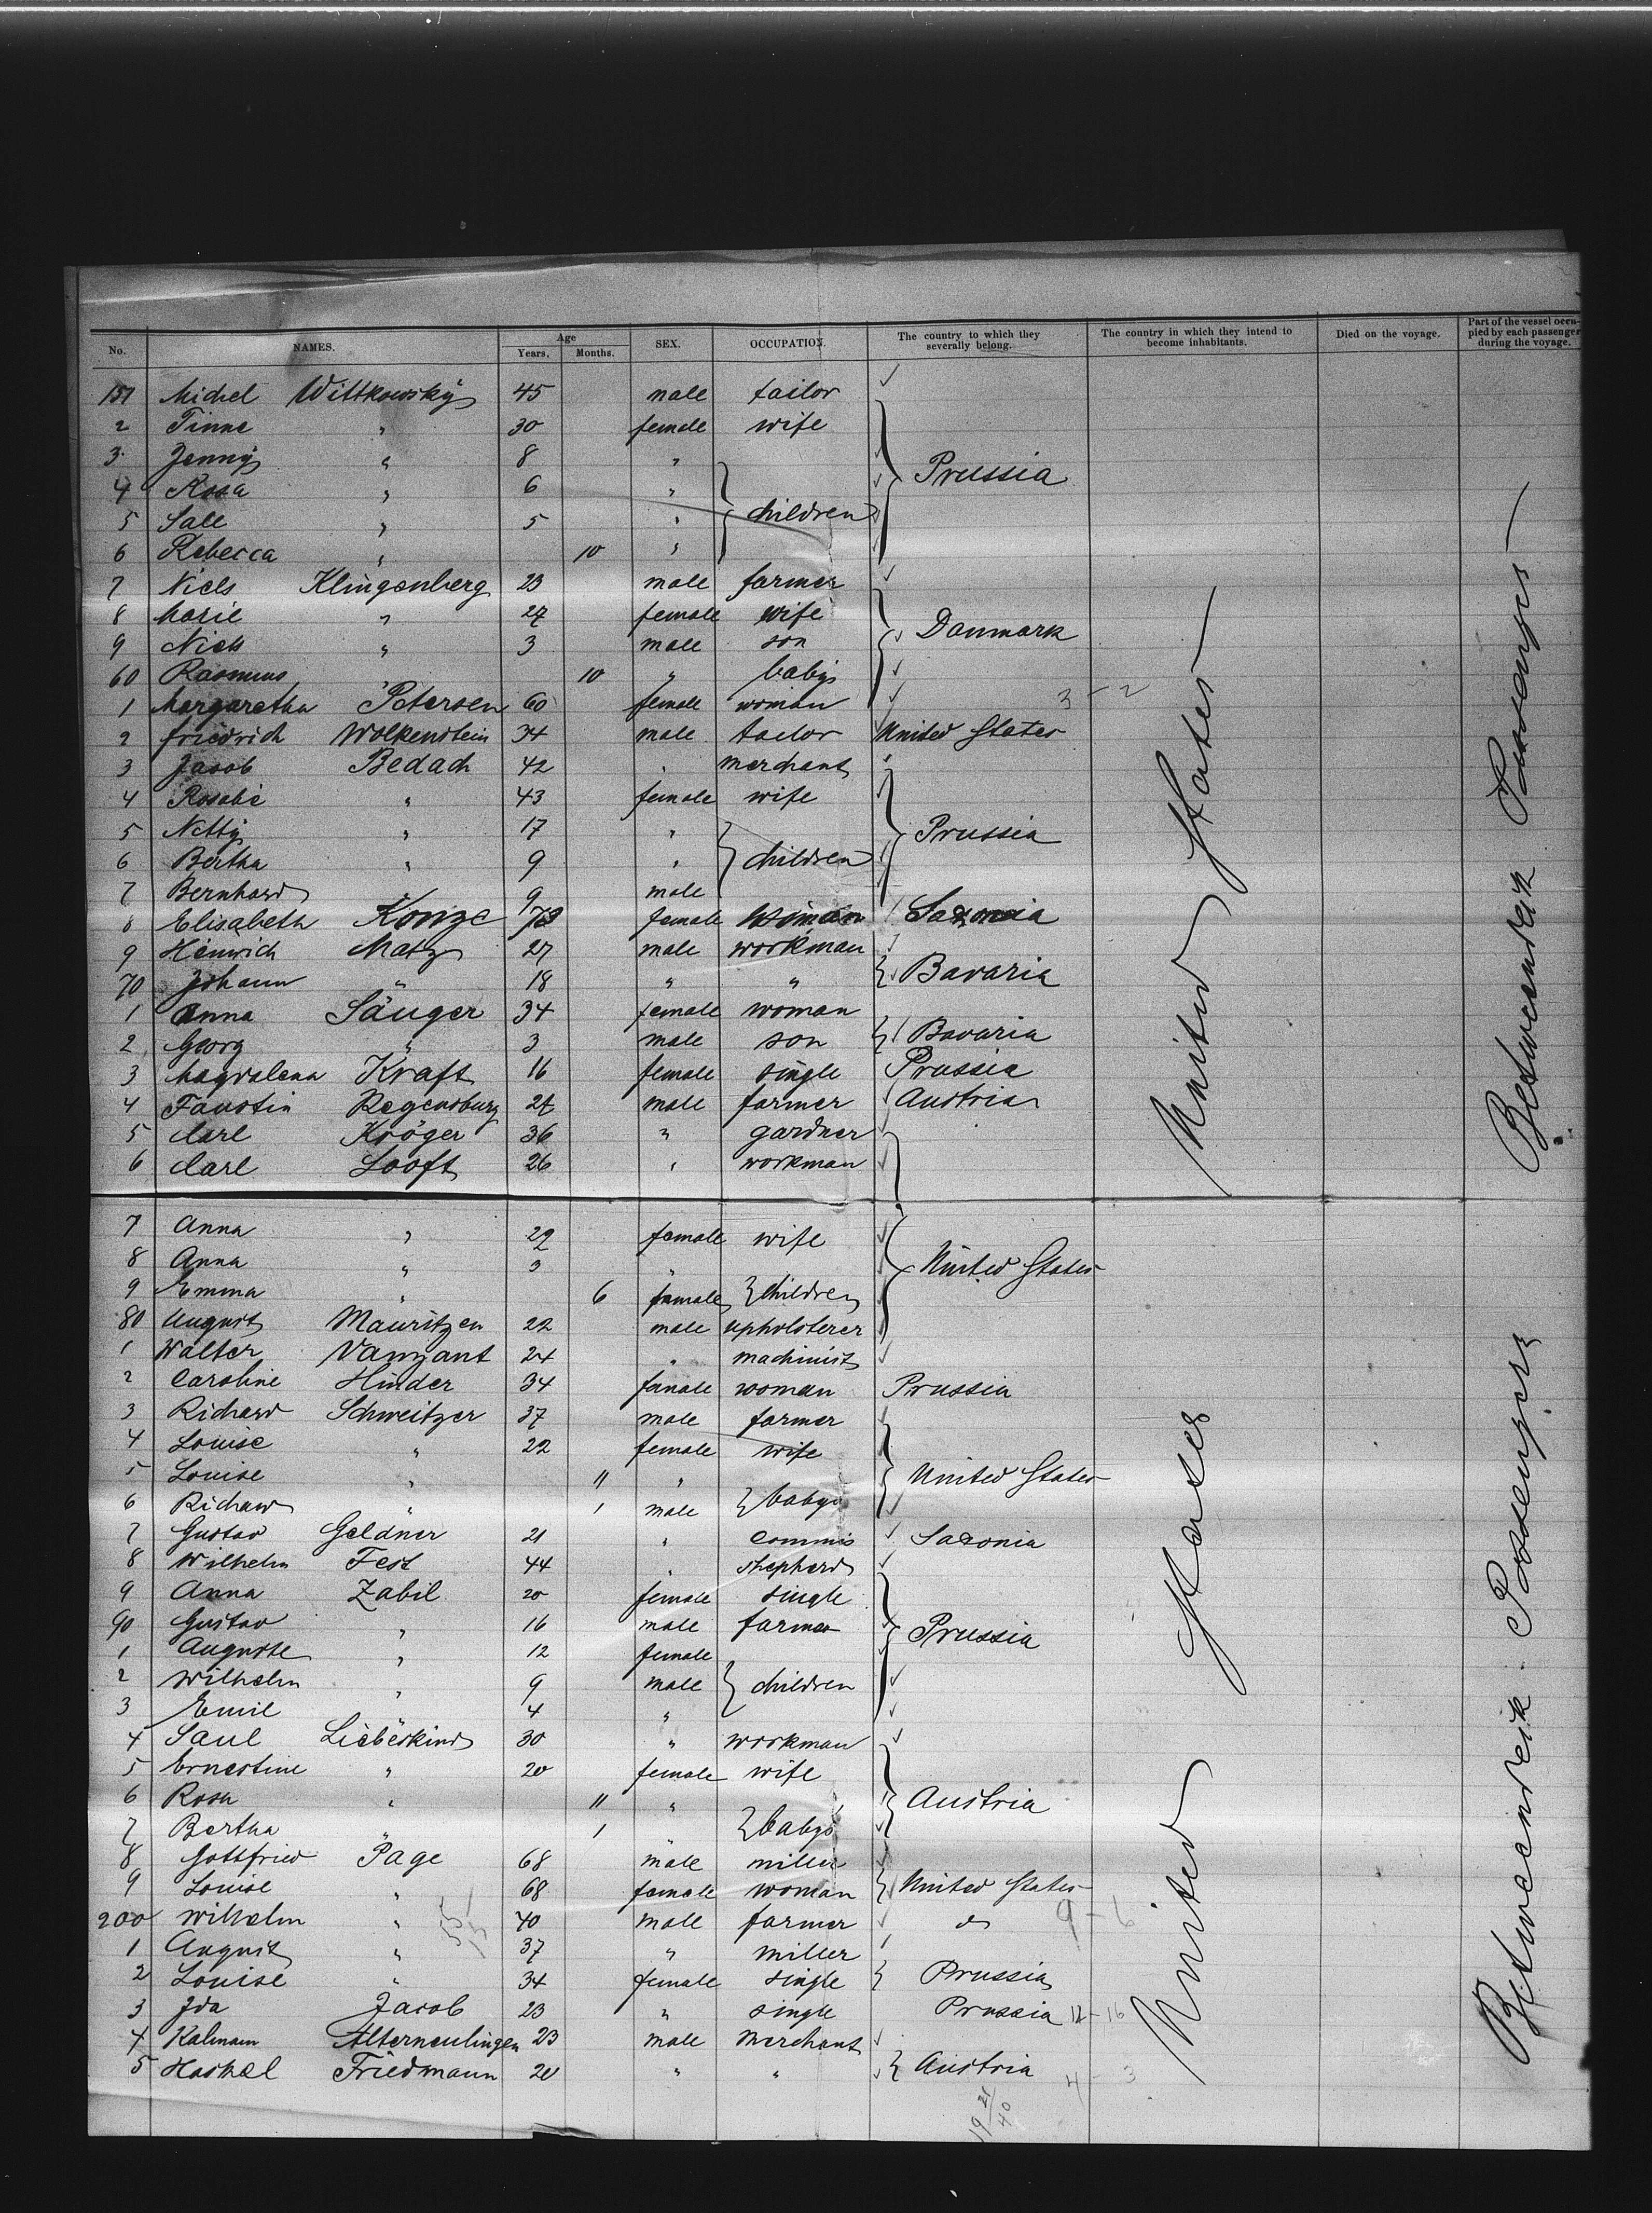 No. NAMES. Age Years. Months. SEX. OCCUPATION. The country to which they severally belong. The country in which they intend to become inhabitants. Died on the voyage. Part of the vessel occupied by each passenger during the voyage.
151 Michel Wittkowsky 45 male tailor
2 Tinne " 30 female wife
3 Jenny " 8 "
4 Rosa " 6 " Prussia
5 Sall " 5 " children
6 Rebecca " 10 "
7 Niels Klingenberg 23 male farmer
8 Marie " 27 female wife
9 Niels " 3 male son Danmark
60 Rasmus " 10 " baby
1 Margaretha Petersen 60 female woman 3-2
2 Friedrich Wolkenstein 34 male tailor United States
3 Jacob Bedach 42 " merchant
4 Rosalie " 43 female wife
5 Netty " 17 " Prussia
6 Bertha " 9 " children
7 Bernhard 9 male
8 Elisabeth Konze female woman Saxonia
9 Heinrich Matz 27 male workman
70 Johann " 18 " " Bavaria
1 Anna Säuger 34 female woman
2 Georg " 3 male son Bavaria
3 Magdalena Kraft 16 female single Prussia
4 Faustin Regensburg male farmer Austria
5 Carl Kröger 36 " gardner
6 Carl Looft 26 " workman
7 Anna " 29 female wife
8 Anna " 3 " United States
9 Emma " 6 female children
80 August Mauritzen 22 male upholsterer
1 Walter Vanzant 24 " machinist
2 Caroline Hinder 34 female woman Prussia
3 Richard Schweitzer 37 male farmer
4 Louise " 22 female wife
5 Louise " 11 " United States
6 Richard " 1 male babys
7 Gustav Geldner 21 " commis Saxonia
8 Wilhelm Fest 44 " shepherd
9 Anna Zabil 20 female single
90 Gustav " 16 male farmer Prussia
1 Auguste " 12 female
2 Wilhelm " 9 male children
3 Emil " 4 "
4 Saul Liebeskind 30 " workman
5 Ernestine " 20 female wife
6 Rosa " 11 " Austria
7 Bertha " 1 " babys
8 Gottfried Page 68 male miller
9 Louise " 68 female woman United States
200 Wilhelm " 40 male farmer do 9-6
1 August " 37 " miller
2 Louise " 34 female single Prussia
3 Ida Jacob 23 " single Prussia 12-16
4 Kalmann 23 male merchant
5 Haskel Friedmann 20 " " Austria 4-3
United States
United States
Betweendeck Passengers
Betweendeck Passengers